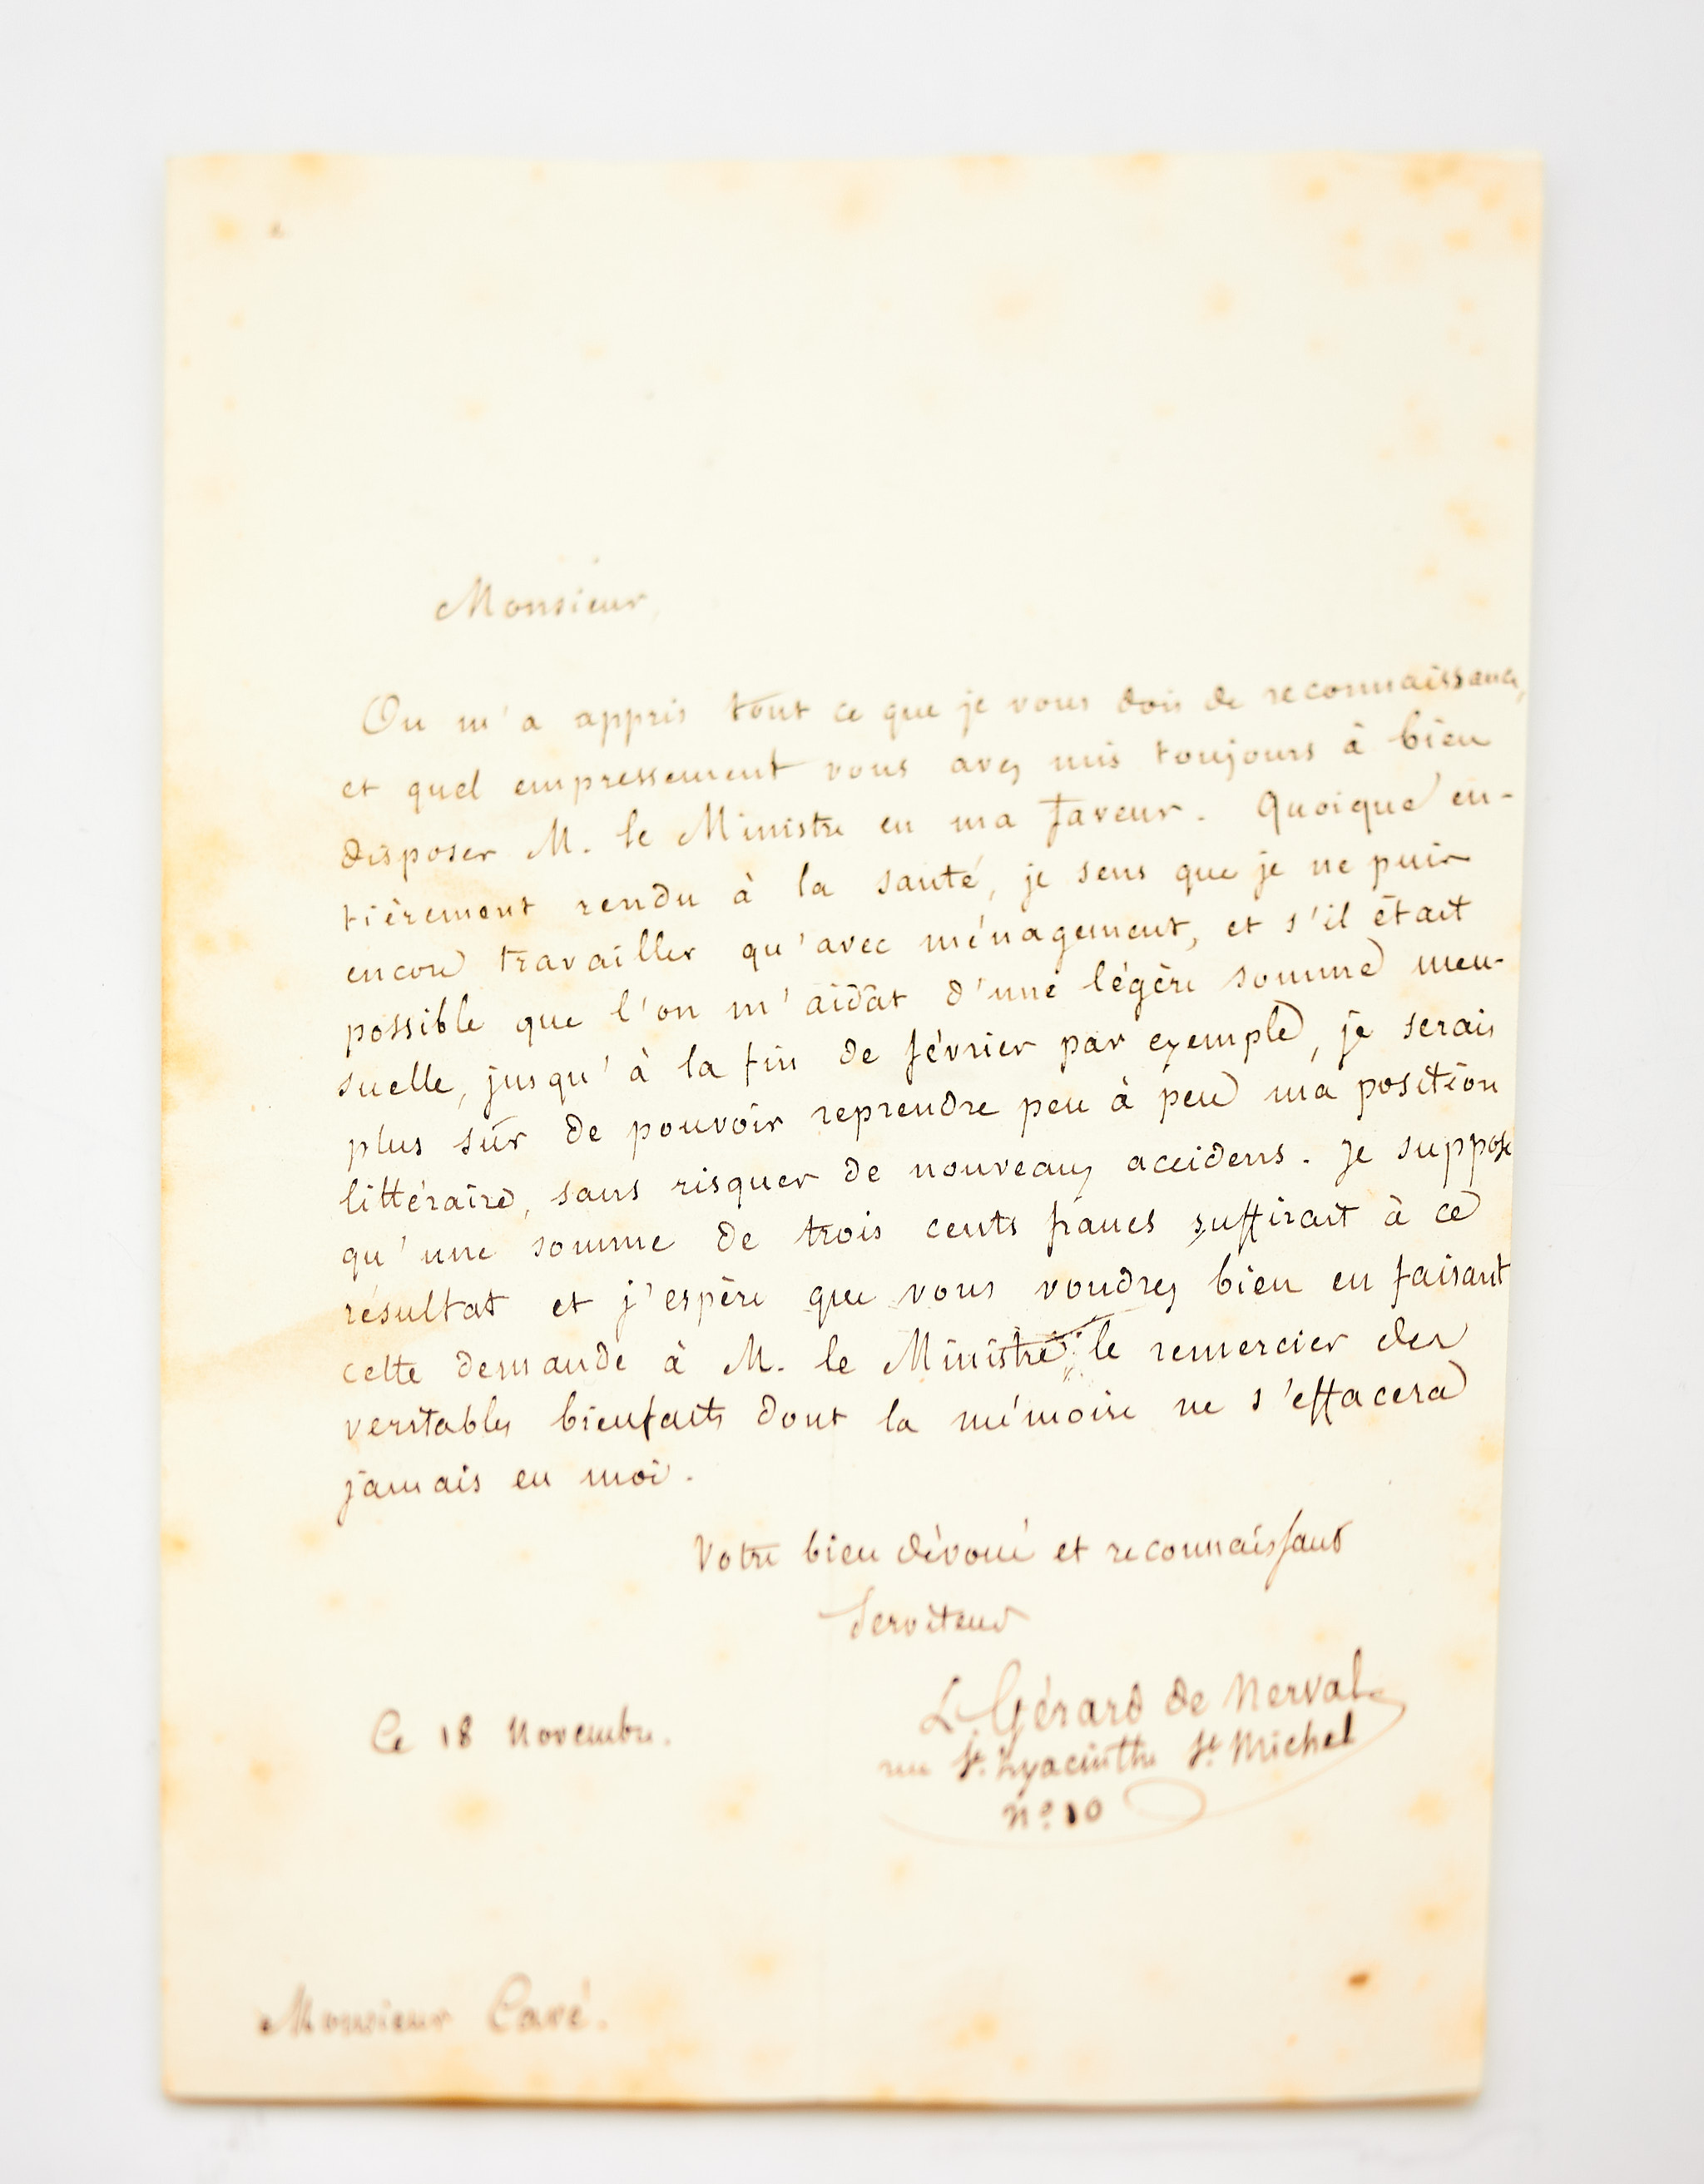 Monsieur,
On m'a appris tout ce que je vous dois de reconnaissance,
et quel empressement vous avez mis toujours à bien
disposer M. le Ministre en ma faveur. Quoique en-
tièrement rendu à la santé, je sens que je ne puis
encore travailler qu'avec ménagement, et s'il était
possible que l'on m'aidât d'une légère somme men-
suelle, jusqu'à la fin de février par exemple, je serais
plus sûr de pouvoir reprendre peu à peu ma position
littéraire, sans risquer de nouveaux accidens. Je suppose
qu'une somme de trois cents francs suffirait à ce
résultat et j'espère que vous voudrez bien en faisant
cette demande à M. le Ministre le remercier des
veritables bienfaits dont la mémoire ne s'effacera
jamais en moi.
Votre bien dévoué et reconnaissant
Serviteur
L. Gérard de Nerval
rue St. hyacinthe St. Michel
n° 10
Ce 18 Novembre.
Monsieur Cavé.